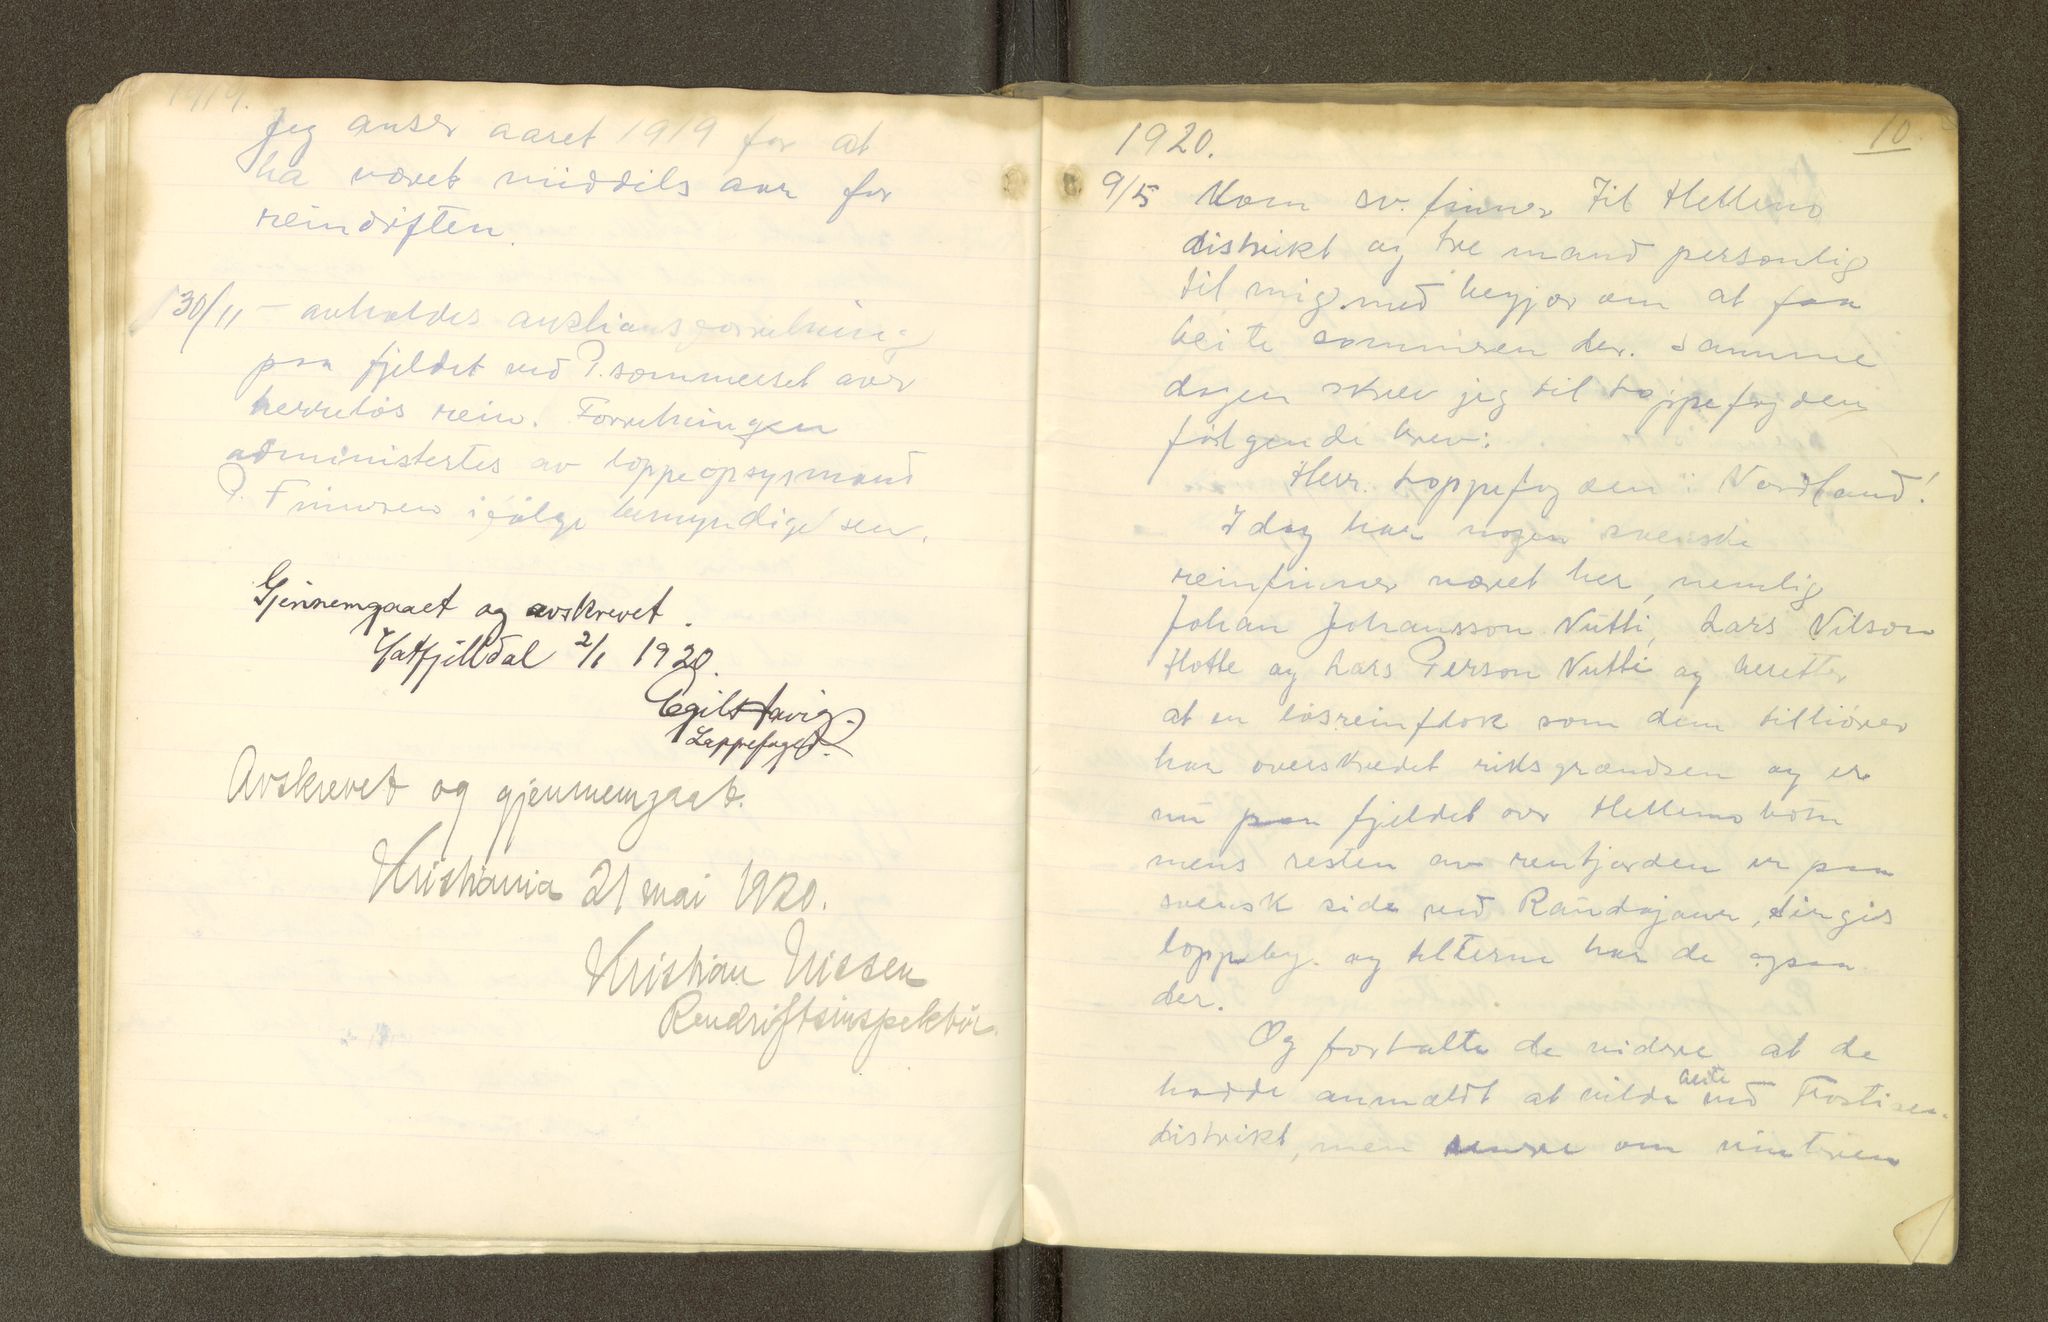 1919.
Jeg anser aaret 1919 for at
ha været middels aar for
reindriften.
30/11 - avholdes auktionsforretning
paa fjeldet ved P. sommerset over
herreløs rein. Forretningen
administertes av lappeopsynsmand
P. Finvren ifølge bemyndigelsen.
Gjennemgaaet og avskrevet.
Hatfjelldal 2/1 1920.
Egil
Lappefoged.
Avskrevet og gjennemgaat.
Kristiania 21 mai 1920.
Kristian Nissen
Rendriftsinspektör.
1920.
10
9/5 Kom sv. finner til Hellemo
distrikt og tre mand personlig
til mig med begjær om at faa
beite sommeren der. Samme
dagen skrev jeg til lappefogden
følgende brev:
Herr. Lappefogden i Nordland!
I dag har nogen svenske
reinfinner været her, nemlig
Johan Johansson Nutti, Lars Nilson
Hotte og Lars Person Nutti og beretter
at en løsreinflok som dem tilhører
har overskredet riksgrændsen og er
nu paa fjeldet over Hellemobotn
mens resten av renhjorden er paa
svensk side ved Randajaur, Sirgis
lappeby. og telterne har de ogsaa
der.
Og fortalte de vidre at de
hadde anmældt at vilde beite ved Frostisen
distrikt, men senere om vinteren